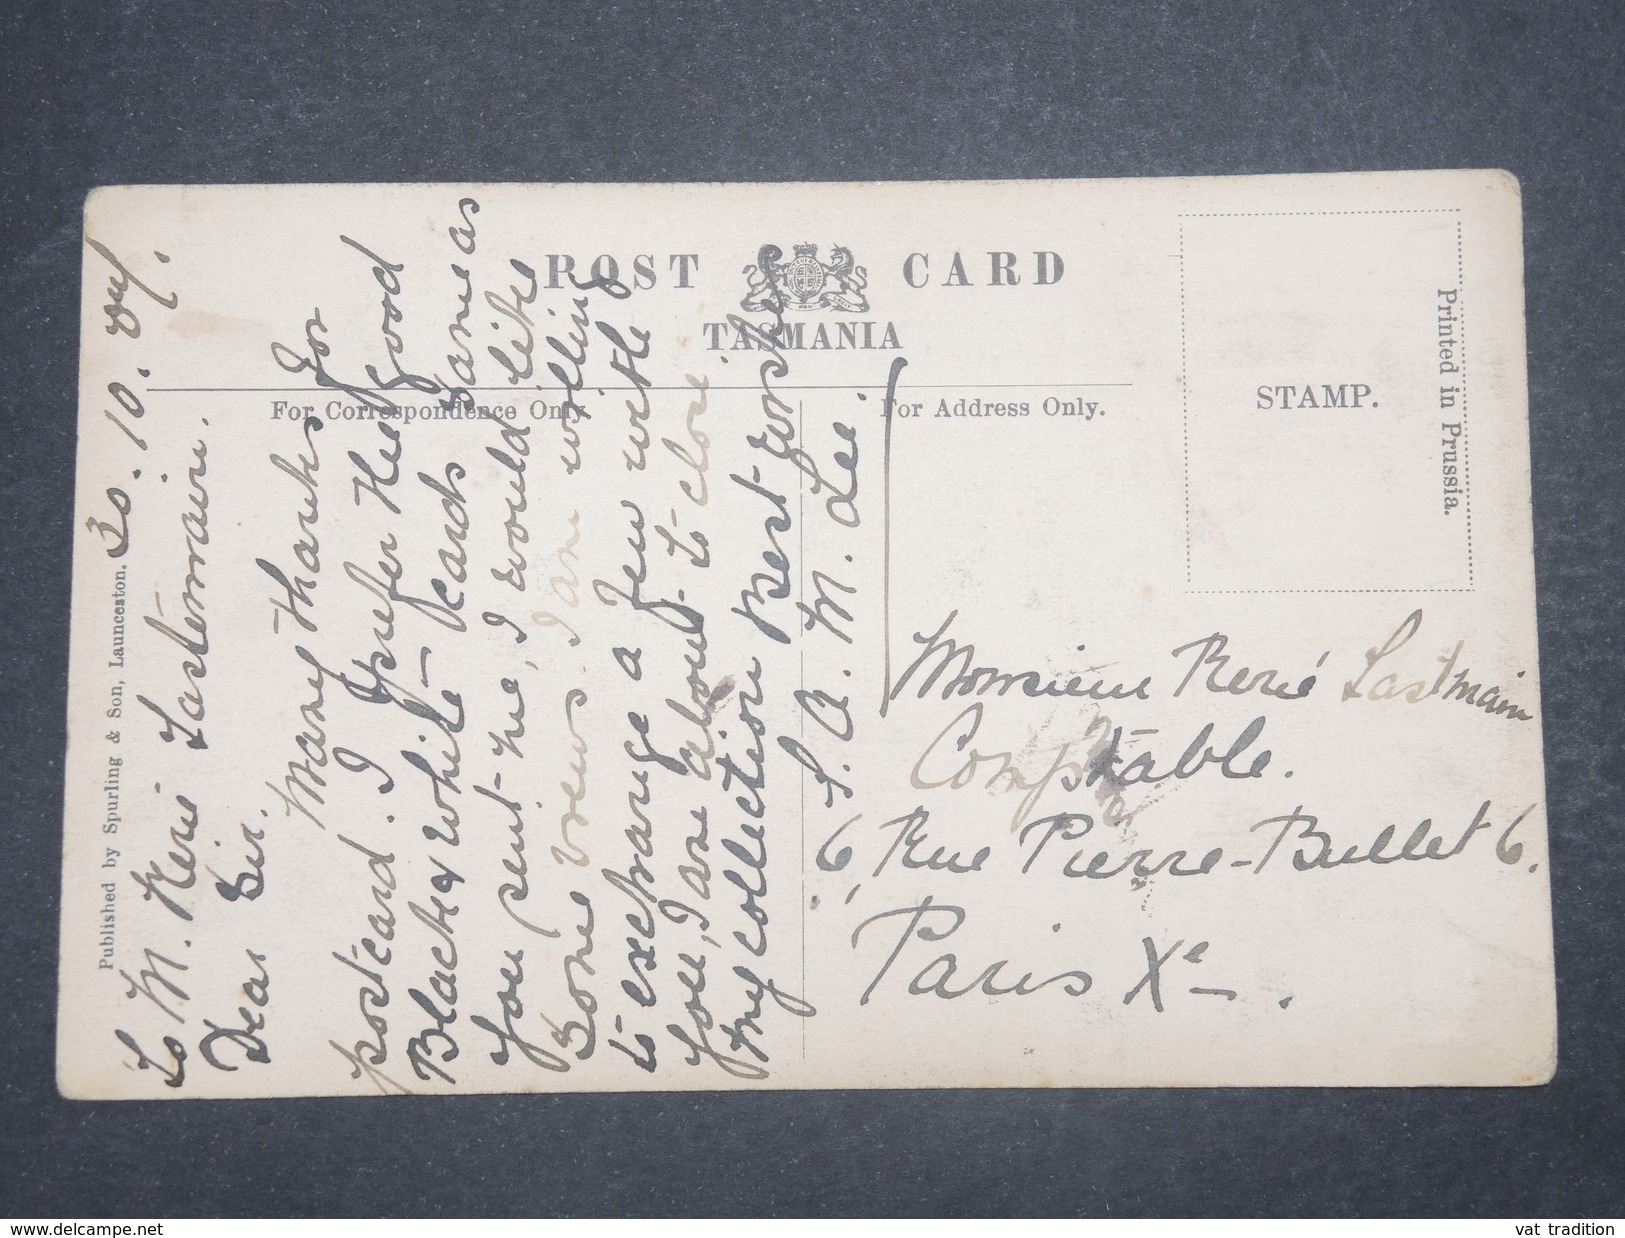 POST CARD
TASMANIA
For Correspondence Only.
For Address Only.
STAMP.
Printed in Prussia.
Published by Spurling & Son, Launceston.
30. 10. 07.
To M. René Lastermain.
Dear Sir.
Many thanks for
postcard. I prefer the good
Black & white cards same as
you sent me, I would like
Some views. I am willing
to exchange a few with
you, I are about to close
my collection Best wishes
S. A. M. Lee.
Monsieur René Lastmain
Comptable.
6, Rue Pierre-Bullet 6.
Paris Xe.
www.delcampe.net
vat tradition